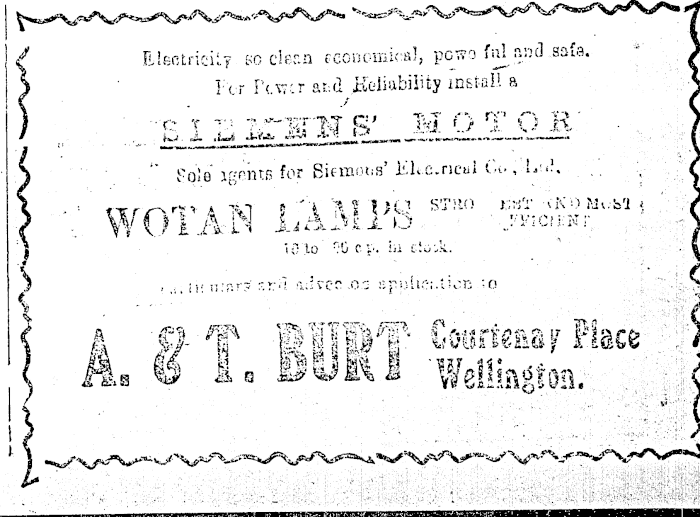 Electricity so clean economical, powe ful and safe.
For Power and Reliability install a
SIEMENS' MOTOR
Sole agents for Siemens' Electrical Co., Ltd.
WOTAN LAMPS STRO EST AND MOST
EFFICIENT
in stock.
and advice on application to
A. & T. BURT Courtenay Place
Wellington.